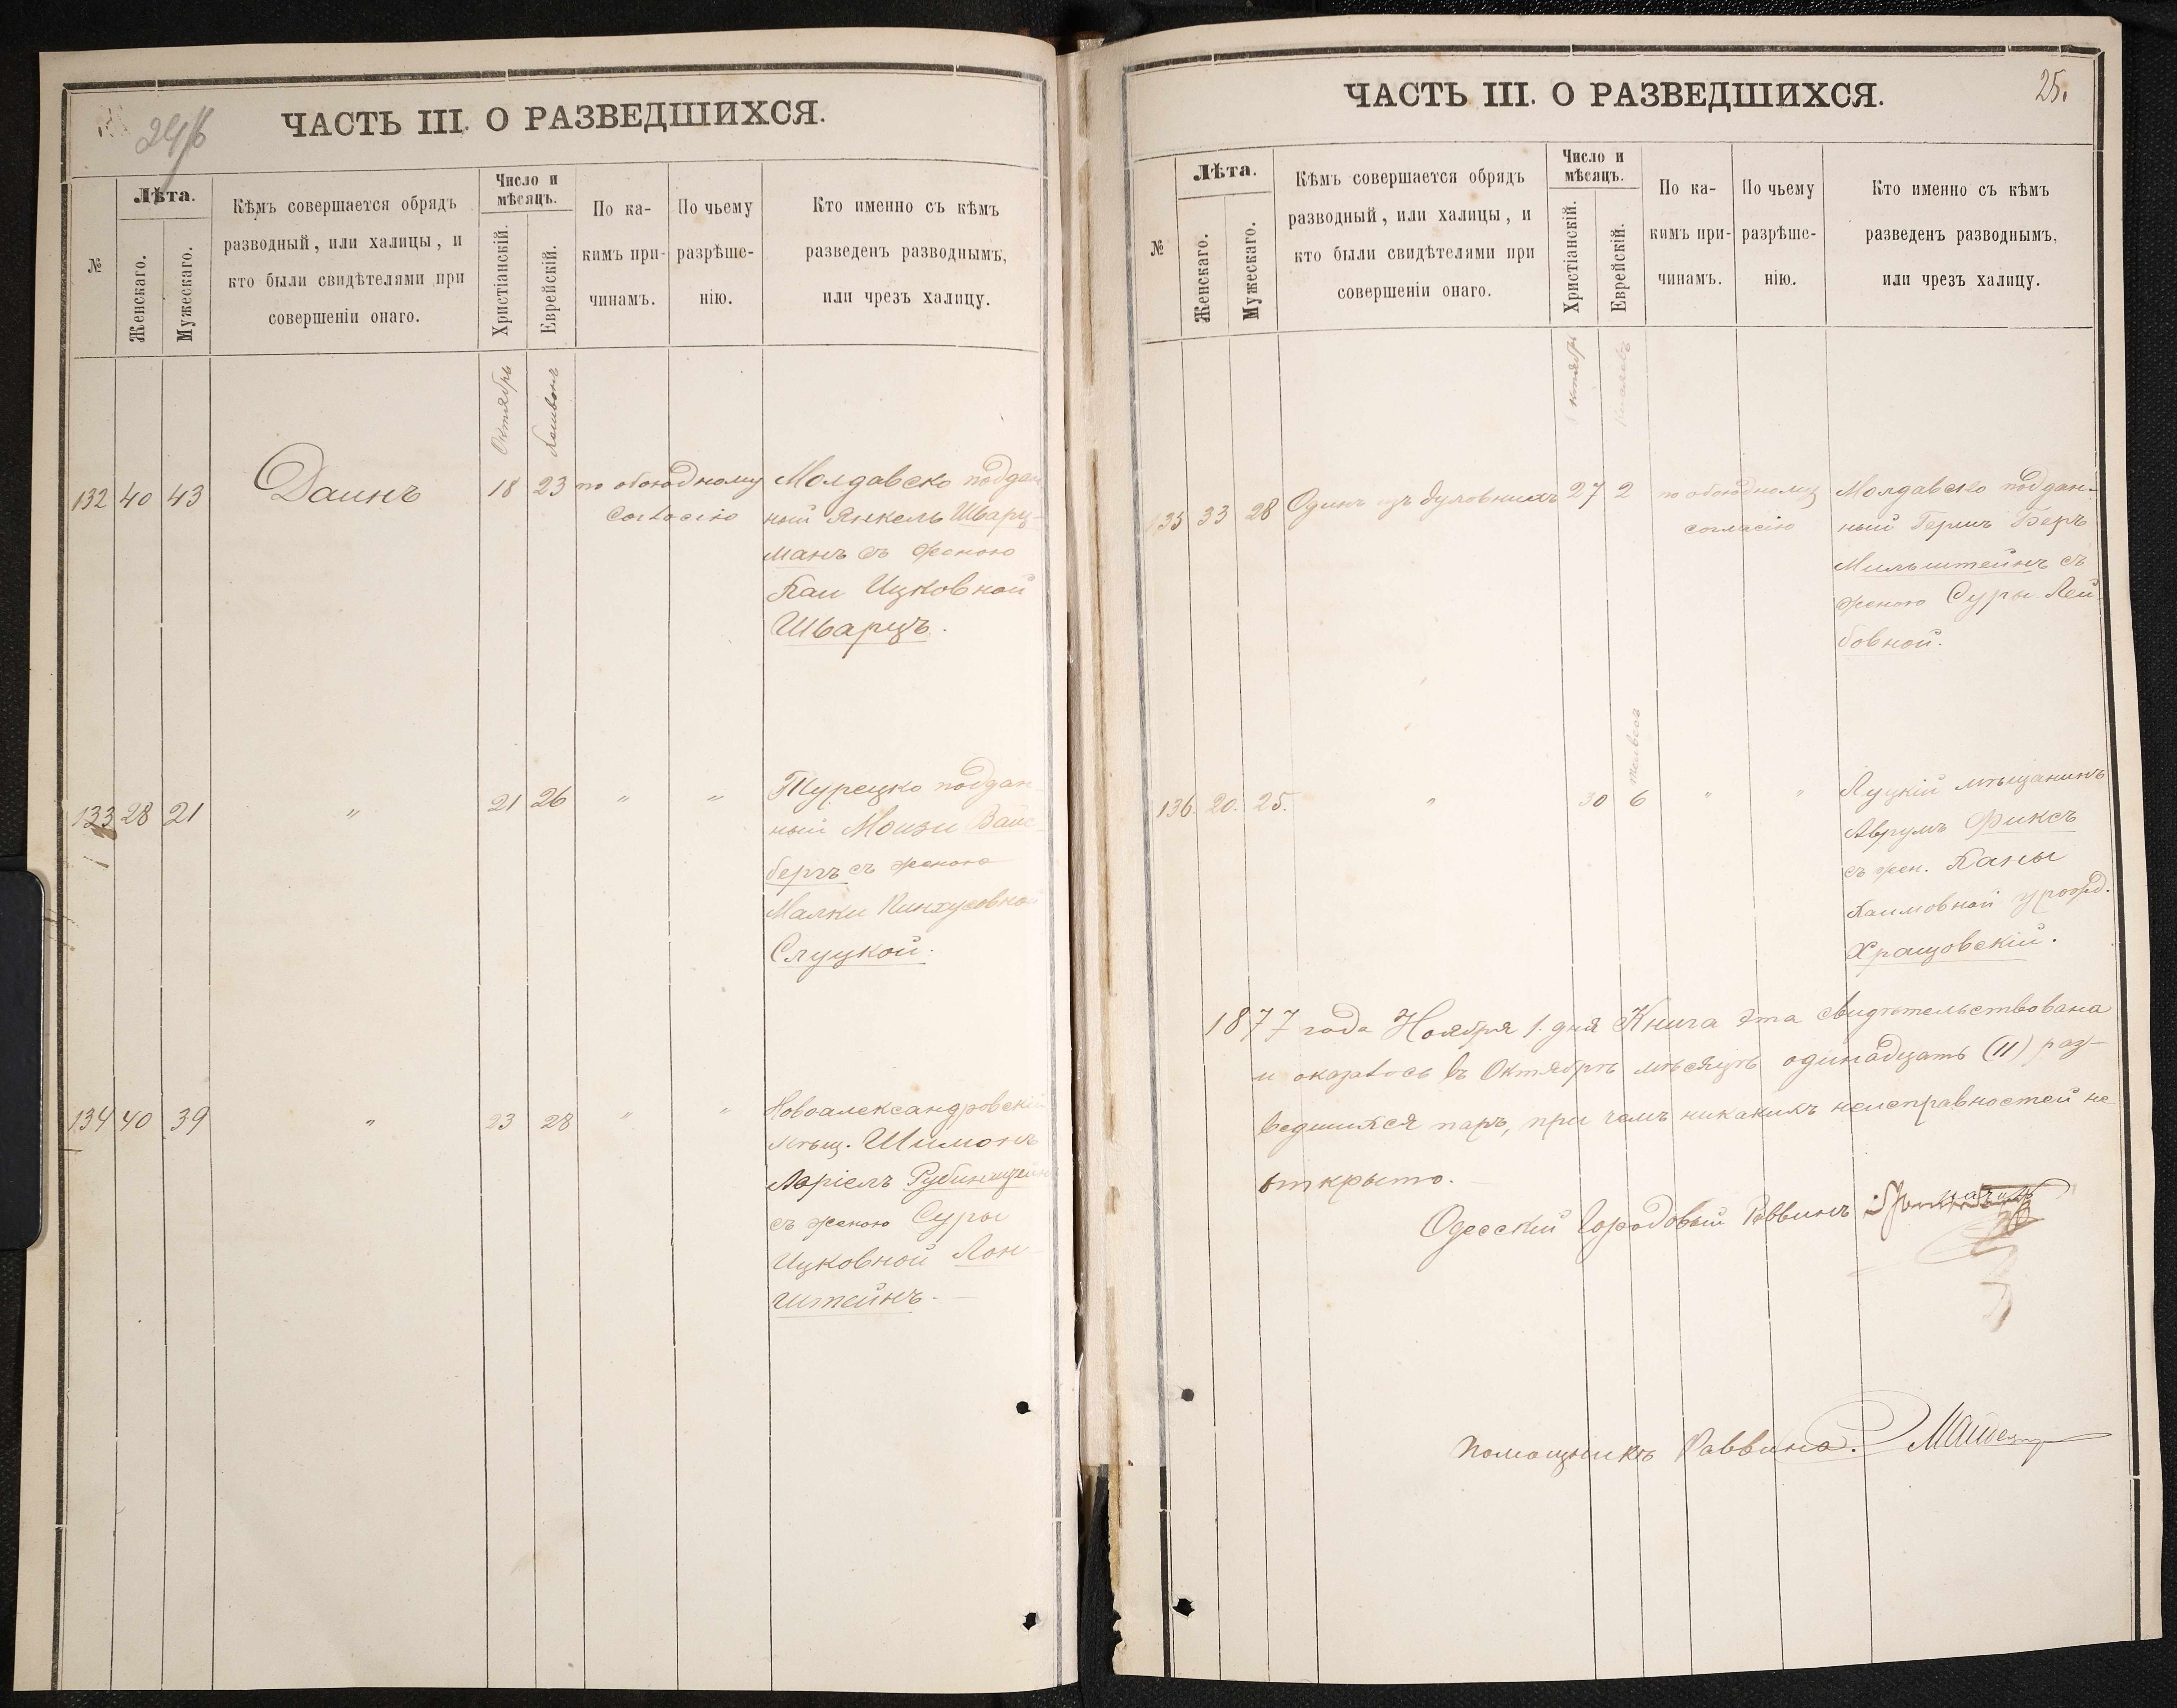 ЧАСТЬ III. О РАЗВЕДШИХСЯ.
№
Лѣта.
Женскаго.
Мужескаго.
Кѣмъ совершается обрядъ
разводный, или халицы, и
кто были свидѣтелями при
совершеніи онаго.
Число и
мѣсяцъ.
Христіанскій.
Еврейскій.
По ка-
кимъ при-
чинамъ.
По чьему
разрѣше-
нію.
Кто именно съ кѣмъ
разведенъ разводнымъ,
или чрезъ халицу.
Октябрь
Хешвонъ
132 40 43 Даинъ 18 23 по обоюдному Молдавско поддан
согласію ный Янкель Шварц-
манъ съ женою
Хаи Ицковной
Шварцъ.
133 28 21 " 21 26 " " Турецко поддан-
ный Моизи Вайс-
бергъ съ женою
Малки Пинхусовной
Слуцкой.
134 40 39 " 23 28 " " Новоалександровскій
мѣщ. Шимонъ
Авріелъ Рубинштейнъ
съ женою Суры
Ицковной Лон-
штейнъ.
ЧАСТЬ III. О РАЗВЕДШИХСЯ.
25.
№
Лѣта.
Женскаго.
Мужескаго.
Кѣмъ совершается обрядъ
разводный, или халицы, и
кто были свидѣтелями при
совершеніи онаго.
Число и
мѣсяцъ.
Христіанскій.
Еврейскій.
По ка-
кимъ при-
чинамъ.
По чьему
разрѣше-
нію.
Кто именно съ кѣмъ
разведенъ разводнымъ,
или чрезъ халицу.
Октябрь
Кислевъ
135 33 28 Одинъ изъ духовныхъ 27 2 по обоюдному Молдавско поддан-
согласію ный Гершъ Беръ
Мильштейнъ съ
женою Суры Лей-
бовной.
136. 20. 25. " 30 6 " " Луцкій мѣщанинъ
Аврумъ Фиксъ
съ жен. Ханы
Хаимовной урожд.
Хращовскій.
1877 года Ноября 1. дня Книга эта свидѣтельствована
и оказалось въ Октябрѣ мѣсяцѣ одинадцать (11) раз-
ведшихся паръ, при чемъ никакихъ неисправностей не
открыто.
Одесскій Городовый Раввинъ
Помощникъ Раввина.